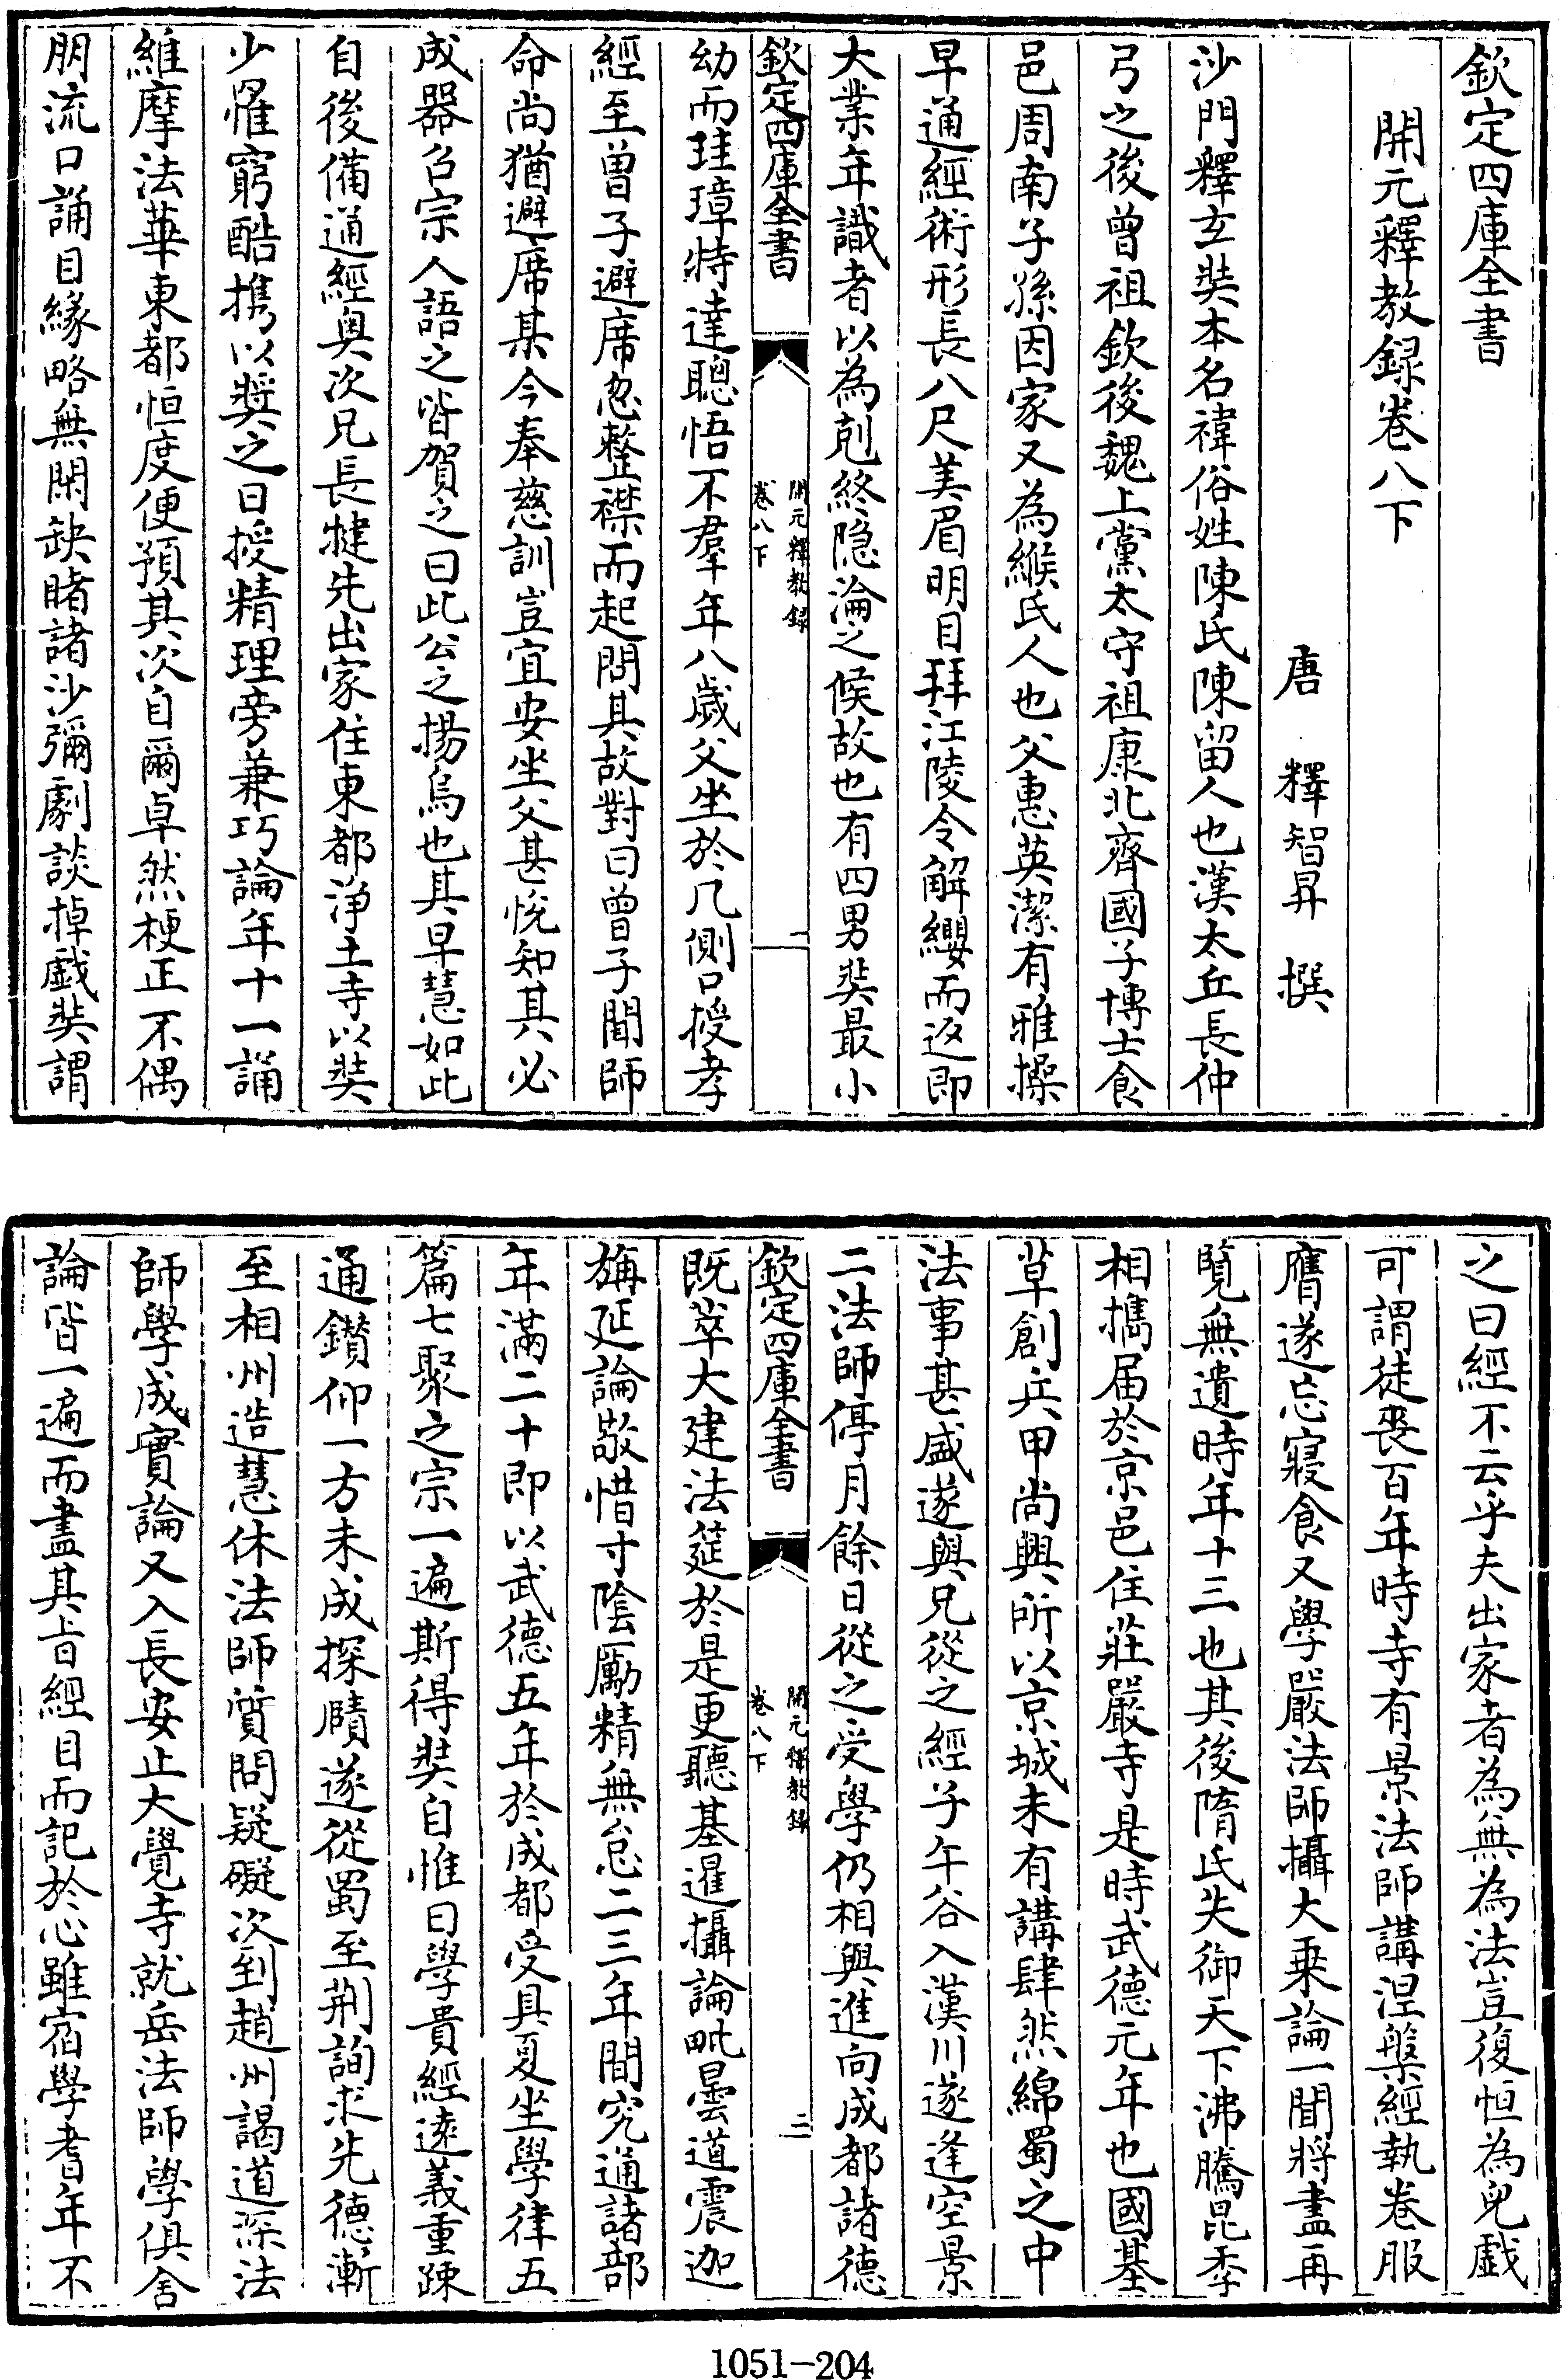 欽定四庫全書
開元釋教録卷八下
唐 釋智昇 撰
沙門釋玄奘本名褘俗姓陳氏陳留人也漢太丘長仲
弓之後曾祖欽後魏上黨太守祖康北齊國子博士食
邑周南子孫因家又為緱氏人也父惠英潔有雅操
早通經術形長八尺美眉明目拜江陵令解纓而返即
大業年識者以為剋終隐淪之候故也有四男奘最小
欽定四庫全書
開元釋教録
卷八下
一
幼而珪璋特達聰悟不羣年八歲父坐於几側口授孝
經至曾子避席忽整襟而起問其故對曰曾子聞師
命尚猶避席某今奉慈訓豈宜安坐父甚悦知其必
成器召宗人語之皆賀之曰此公之揚烏也其早慧如此
自後備通經奥次兄長揵先出家住東都淨土寺以奘
少罹窮酷携以奬之日授精理旁兼巧論年十一誦
維摩法華東都恒度便預其次自爾卓然梗正不偶
朋流口誦目緣略無閑缺睹諸沙彌劇談掉戯奘謂
之曰經不云乎夫出家者為無為法豈復恒為兒戯
可謂徒喪百年時寺有景法師講涅槃經執卷服
膺遂忘寢食又學嚴法師攝大乗論一聞將盡再
覽無遺時年十三也其後隋氏失御天下沸騰昆季
相携届於京邑住莊嚴寺是時武德元年也國基
草創兵甲尚興所以京城未有講肆然綿蜀之中
法事甚盛遂與兄從之經子午谷入漢川遂逢空景
二法師停月餘日從之受學仍相與進向成都諸德
欽定四庫全書
開元釋教録
卷八下
二
既萃大建法筵於是更聽基暹攝論毗曇道震迦
旃延論敬惜寸陰勵精無怠二三年間究通諸部
年滿二十即以武德五年於成都受具夏坐學律五
篇七聚之宗一遍斯得奘自惟曰學貴經逺義重疎
通鑚仰一方未成探賾遂從蜀至荆詢求先德漸
至相州造慧休法師質問疑礙次到趙州謁道深法
師學成實論又入長安止大覺寺就岳法師學俱舍
論皆一遍而盡其旨經目而記於心雖宿學耆年不
1051-204